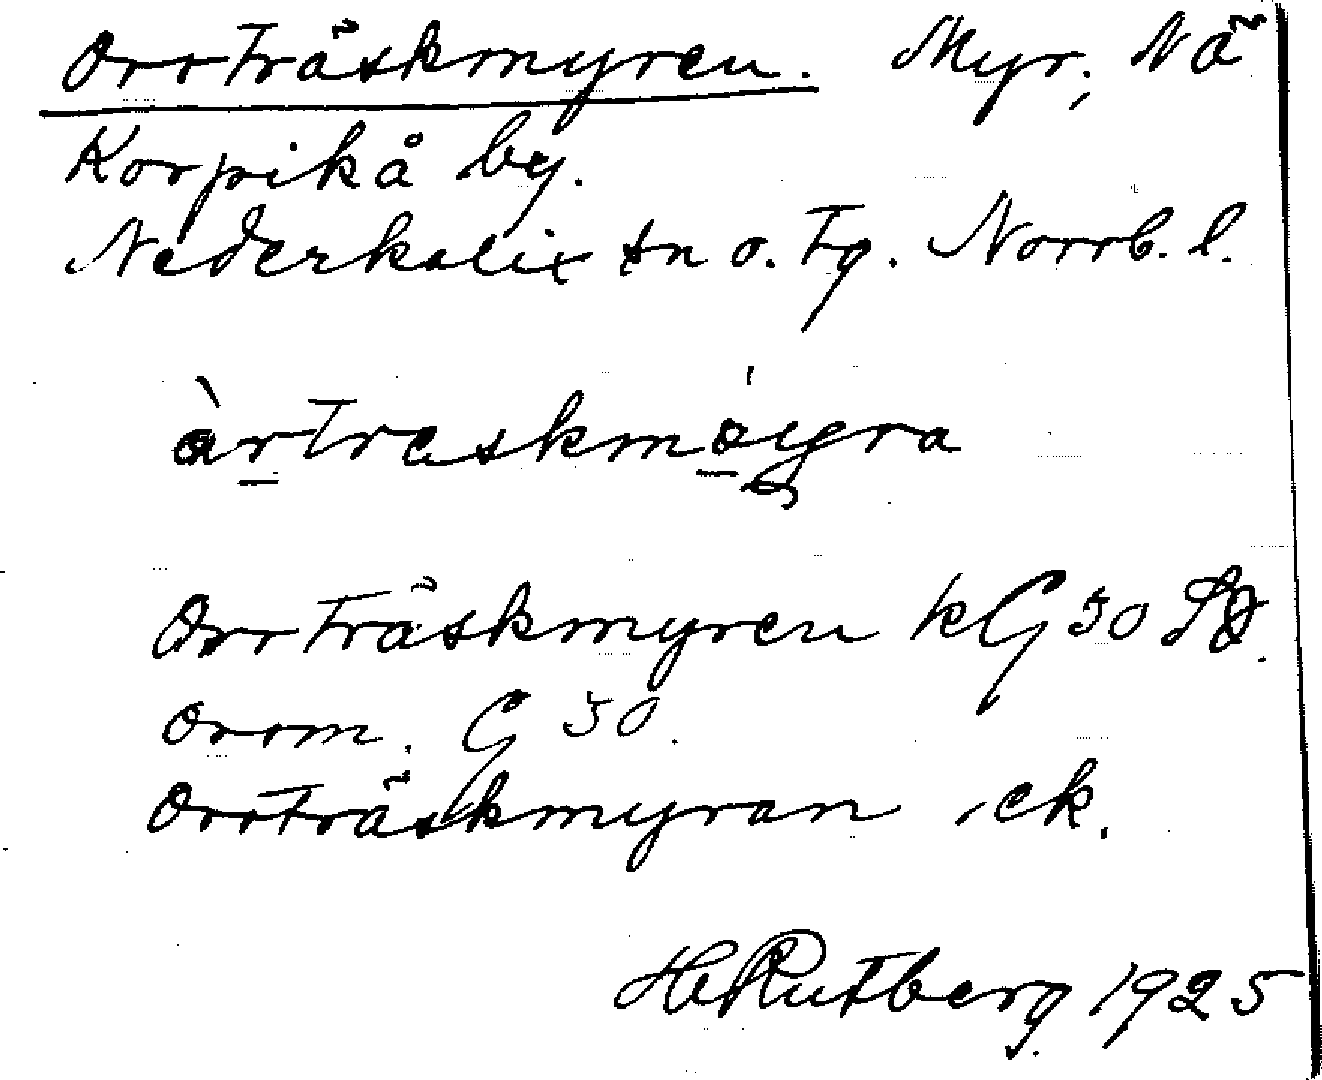 Orrträskmyren. Myr, Nä
Korpikå by.
Nederkalix sn o. tg. Norrb. l.
àrtraskmöyra
Orrträskmyren kG 50 SO.
Orrm. G 50.
Orrträskmyran ek.
H Rutberg 1925